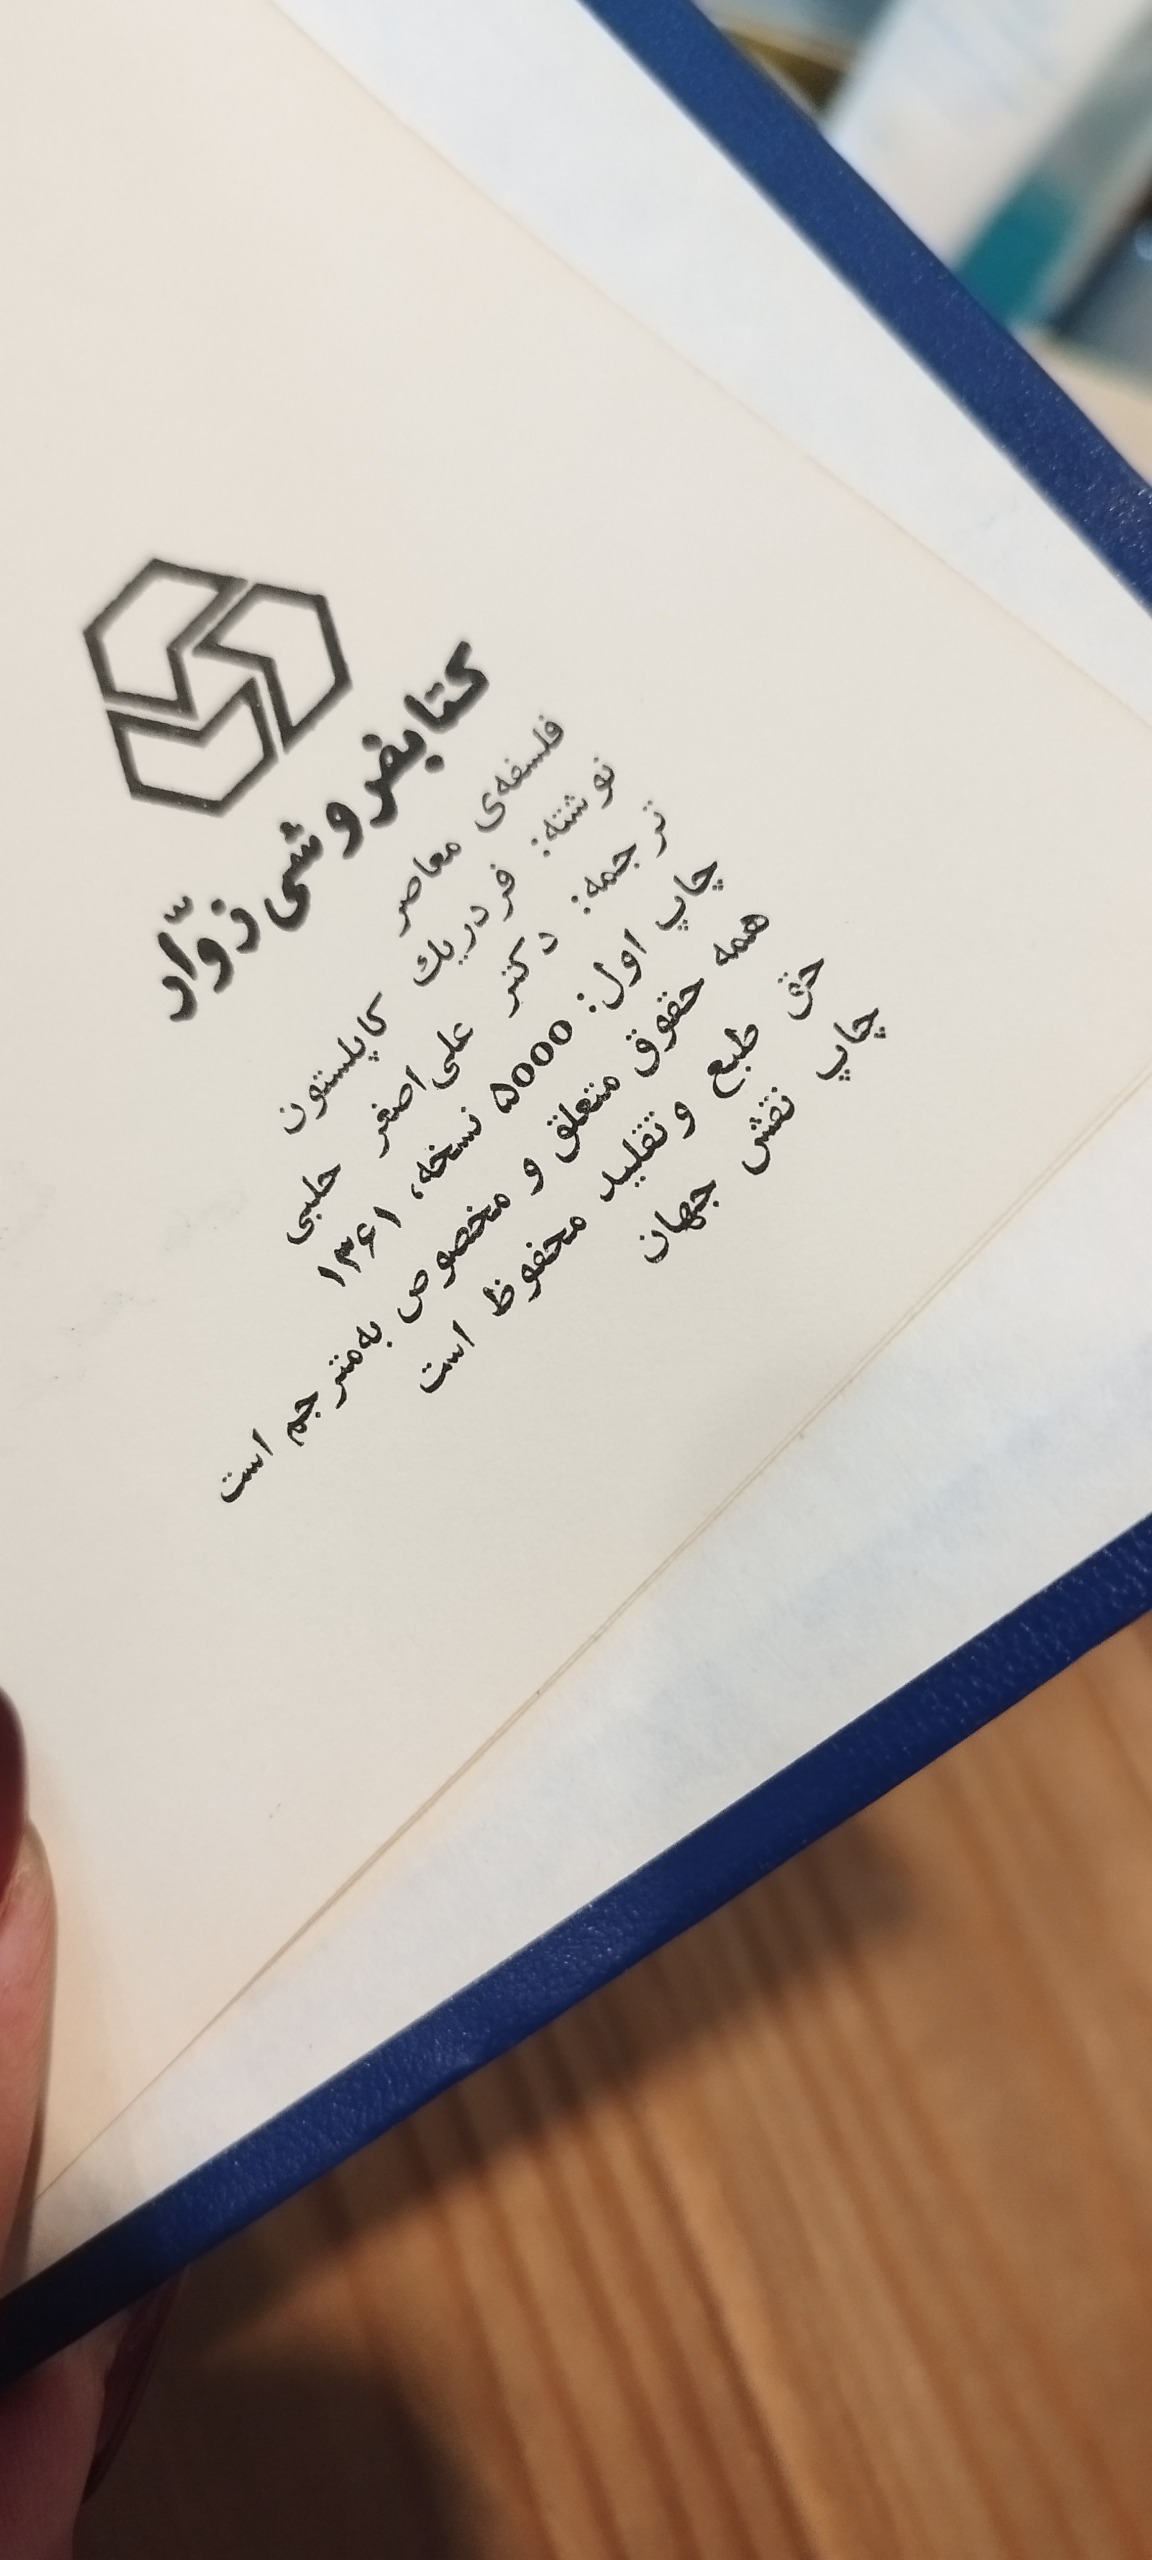 کتابفروشی زوّار
فلسفه‌ی معاصر
نوشته: فردریك کاپلستون
ترجمه: دکتر علی‌اصغر حلبی
چاپ اول: ۵۰۰۰ نسخه، ۱۳۶۱
همه حقوق متعلق و مخصوص به‌مترجم است
حق طبع و تقلید محفوظ است
چاپ نقش جهان